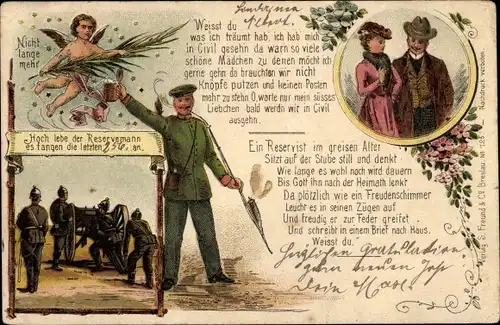 Nicht
lange
mehr
Weisst du
was ich träumt hab, ich hab mich
in Civil gesehn da warn so viele
schöne Mädchen zu denen möcht ich
gerne gehn da brauchten wir nicht
Knöpfe putzen und keinen Posten
mehr zu stehn O, warte nur mein süsses
Liebchen bald werdn wir in Civil
ausgehn.
Hoch lebe der Reservemann
es fangen die letzten 256. an.
Ein Reservist im greisen Alter
Sitzt auf der Stube still und denkt
Wie lange es wohl noch wird dauern
Bis Gott ihn nach der Heimath lenkt
Da plötzlich wie ein Freudenschimmer
Leucht es in seinen Zügen auf
Und freudig er zur Feder greifet
Und schreibt in einem Brief nach Haus.
Weisst du.
Gratulation
zum neuen Jahr
Dein
Nachdruck verboten.
Verlag S. Freund & Co Breslau. No 125